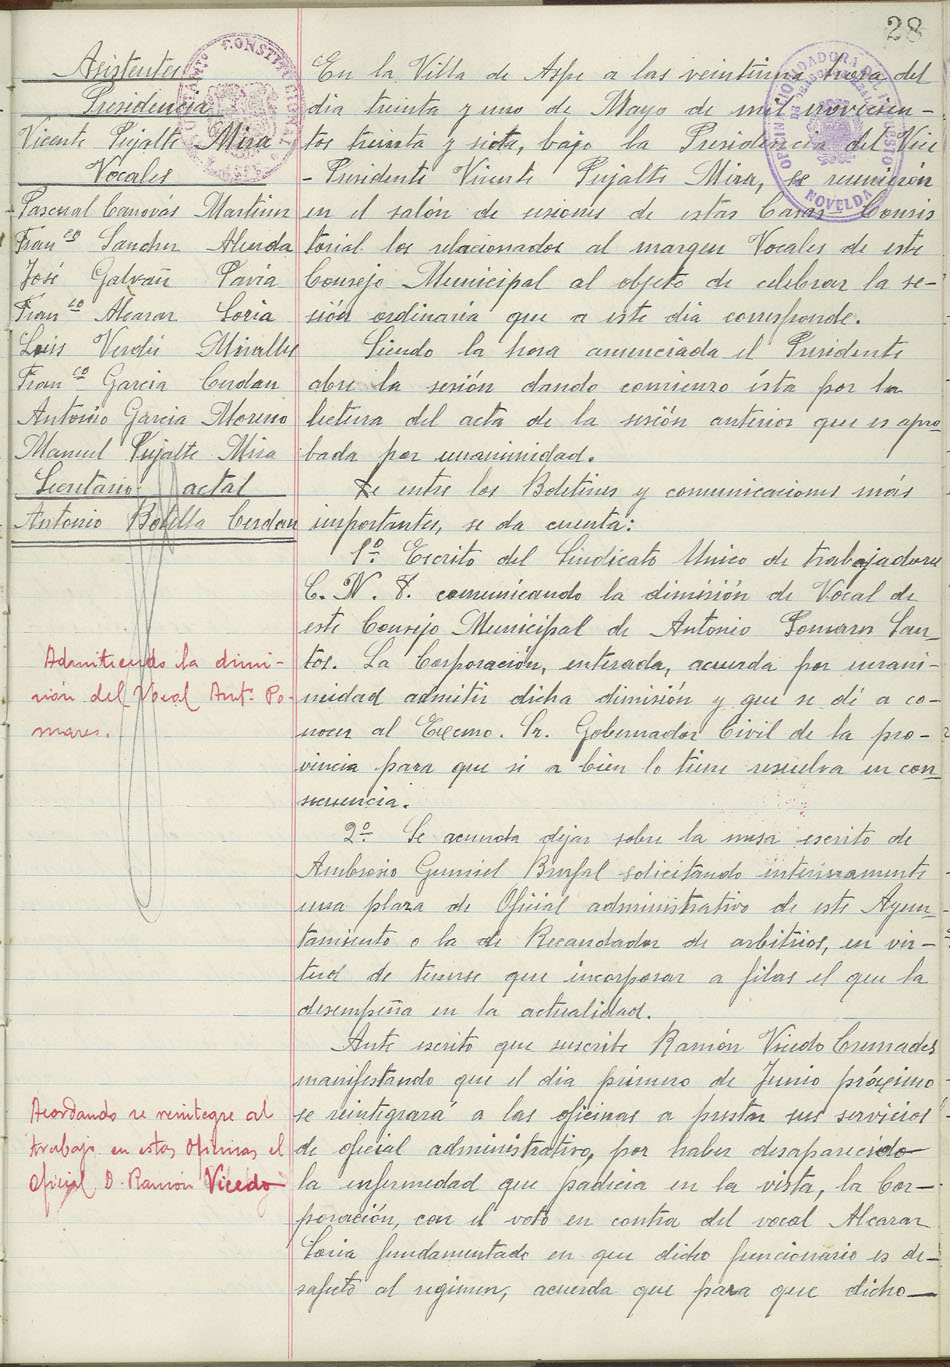 28
Asistentes
Presidencia
Vicente Pujalte Mira
Vocales
Pascual Canovas Martinez
Fran.co Sanchez Alzeda
José Galvañ Pavía
Fran.co Alcaraz Soria
Luis Verdú Miralles
Fran.co Garcia Cerdan
Antonio Garcia Moreno
Manuel Pujalte Mira
Secretario actal
Antonio Botella Cerdan
Admitiendo la dimi-
sión del Vocal Ant.º Po-
mares.
Acordando se reintegre al
trabajo en estas Oficinas el
oficial D. Ramón Vicedo
En la Villa de Aspe a las veintiuna horas del
dia treinta y uno de Mayo de mil novecien-
tos treinta y siete, bajo la Presidencia del Vice
-Presidente Vicente Pujalte Mira, se reunieron
en el salón de sesiones de estas Casas Consis
torial los relacionados al margen Vocales de este
Consejo Municipal al objeto de celebrar la se-
sión ordinaria que a este dia corresponde.
Siendo la hora anunciada el Presidente
abre la sesión dando comienzo ésta por la
lectura del acta de la sesión anterior que es apro
bada por unanimidad.
De entre los Boletines y comunicaciones más
importantes, se da cuenta:
1º. Escrito del Sindicato Unico de trabajadores
C. N. T. comunicando la dimisión de Vocal de
este Consejo Municipal de Antonio Pomares San
tos. La Corporación, enterada, acuerda por unani-
midad admitir dicha dimisión y que se dé a co-
nocer al Excmo. Sr. Gobernador Civil de la pro-
vincia para que si a bien lo tiene resuelva en con
secuencia.
2º. Se acuerda dejar sobre la mesa escrito de
Ambrosio Gumiel Brufal solicitando interinamente
una plaza de Oficial administrativo de este Ayun
tamiento o la de Recaudador de arbitrios, en vir-
tud de tenerse que incorporar a filas el que la
desempeña en la actualidad.
Ante escrito que suscribe Ramón Vicedo Cremades
manifestando que el dia primero de Junio próximo
se reintegrará a las oficinas a prestar sus servicios
de oficial administrativo, por haber desaparecido
la enfermedad que padecia en la vista, la Cor-
poración, con el voto en contra del vocal Alcaraz
Soria fundamentado en que dicho funcionario es de-
safecto al regimen, acuerda que para que dicho
CONSTITUCIONAL
NOVELDA